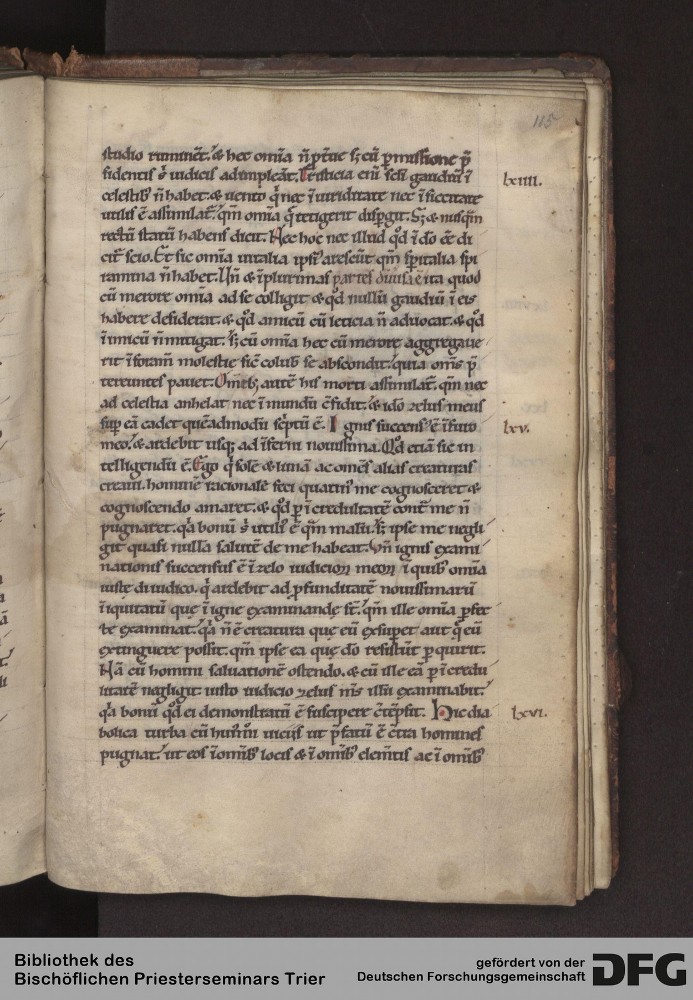 115
studio ruminet̄. & hec om̄ia n̄ ꝑt̄ue sꝫ cū ꝑmissione p̄
sidentis s̄ iudicis adimpleāt. Tristicia eni ̄ seſi gaudiū ī
lxiiii.
celestibꝰ n̄ habet. & uento q̄ nec ī uiriditate nec ī siccitate
utilis ē assimilat̄. qm̄ omīa q̄ tetigerit disꝑgit. Sꝫ & nusq̄m
rectū statū habens dicit. Nec hoc nec illud qd̄ ī do ēē di
cit̄ scio. Et sic omīa uitalia ipsi ̄ arescūt qm̄ sp̄italia spi
ramina n̄ habet. Vn̄ & īplurimas partes diuisa ē ita quod
cū merore omīa ad se colligit & qd̄ nullū gaudiū ī eis
habere desiderat. & qd̄ amicū cū leticia n̄ aduocat. & qd̄
īimicū n̄ mitigat. sꝫ cū omīa hec cū merore aggregaue
rit ī foram̄ molestie sic̄ colub̄ se abscondit. quia om̄s p̄
tereuntes pauet. Om̄ibꝫ autē his morti assimilat̄. qm̄ nec
ad celestia anhelat nec ī mundū c̄fidit. & ido zelus meus
suꝑ eā cadet quēadmodū sc̄ptū ē. Ignis succens̄ ē ī furo
lxv.
meo. & ardebit usqꝫ ad īferni nouissima. Qd̄ etiā sic in
telligendū ē. Ego q̄ solē & lunā ac om̄es alias creaturas
creaui. hominē racionalē feci quatin̄ me cognosceret &
cognoscendo amaret. & qd̄ ꝑ īcredultatē cont̄ me n̄
pugnaret. q̄a bonū s̄ utili ̄ ē qm̄ malū. sꝫ ipse me negli
git quasi nulla salutē de me habeat. Vn̄ ignis exami
nationis succensus ē ī zelo iudicioꝝ meoꝝ ī quibꝰ omīa
iuste diiudico. q̄ ardebit ad ꝓfunditatē nouissimarū
īiquitatū quę ī igne examinandę st̄. qm̄ ille omīa ꝑfec
te examinat. q̄a n̄ ē creatura que eū exsuperet aut q̄ eū
extinguere possit. qm̄ ipse ea quę do resistūt ꝑquirit.
Nā cū homini saluationē ostendo. & cū ille eā ꝑ īcredu
litatē negligit iusto iudicio zelus ms̄ illū examinabit.
q̄a bonū qd̄ ei demonstratū ē suscipere c̄tēpsit. Hic dia
lxvi.
bolica turba cū huīm̄ uicijs ut p̄fatū ē c̄tra homines
pugnat. ut eos ī omībꝰ locis & ī omībꝰ elem̄tis ac ī omībꝰ
Bibliothek des
Bischöflichen Priesterseminars Trier
gefördert von der
Deutschen Forschungsgemeinschaft
DFG